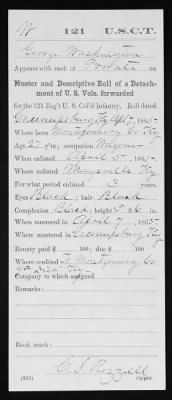 W 121 U.S.C.T.
George Washington
Appears with rank of Private on
Muster and Descriptive Roll of a Detach-
ment of U. S. Vols. forwarded
for the 121 Reg't U. S. Col'd Infantry. Roll dated
Greenupsburg Ky Apl 7, 1865
Where born Montgomery Co Ky
Age 27 y'rs; occupation
When enlisted April 5, 1865
Where enlisted
For what period enlisted 3 years.
Eyes Black; hair Black
Complexion Black; height 5 ft. 6 in.
When mustered in April 7, 1865
Where mustered in Greenupsburg Ky
Bounty paid $ 100; due $ 100
Where credited Montgomery Co
Dist Ky
Company to which assigned
Remarks:
Book mark:
(339) Copyist.